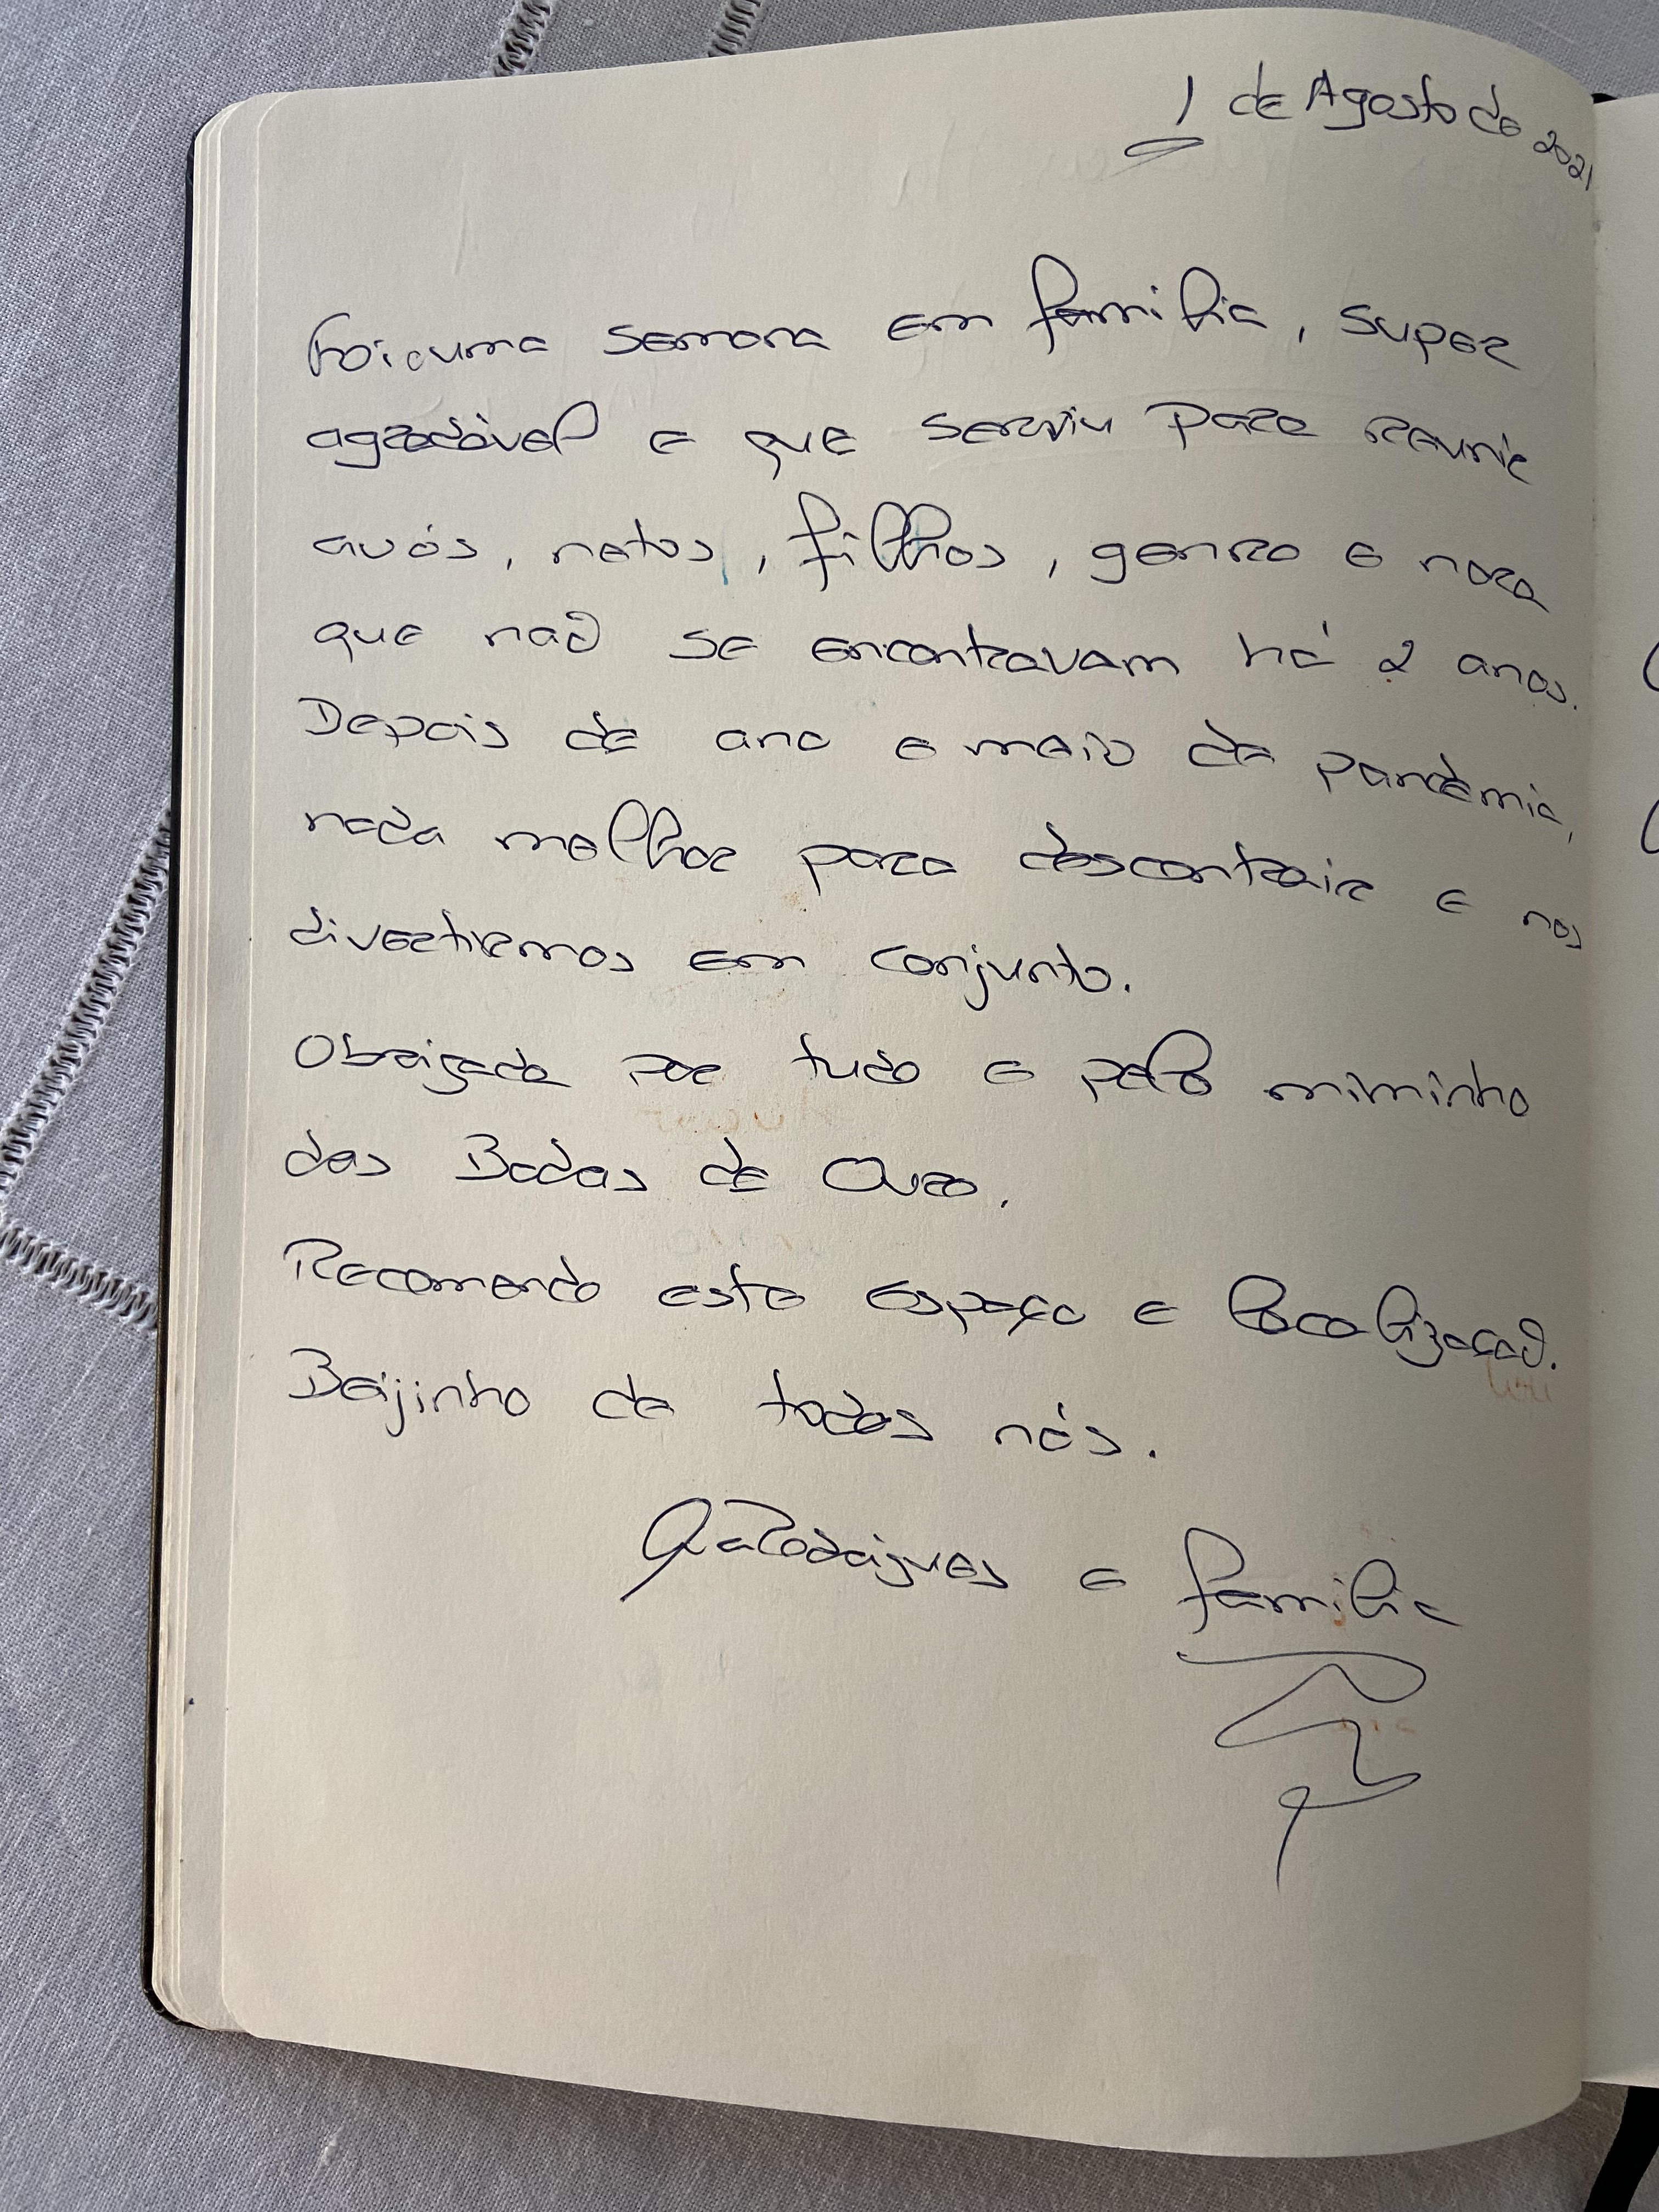 1 de Agosto de 2021
Foi uma semana em familia, super
agradável e que serviu para reunir
avós, netos, filhos, genro e nora
que não se encontravam há 2 anos.
Depois de ano e meio de pandemia,
nada melhor para descontrair e nos
divertirmos em conjunto.
Obrigada por tudo e pelo miminho
das Bodas de Ouro.
Recomendo este espaço e localização.
Beijinho de todos nós.
Rodrigues e familia